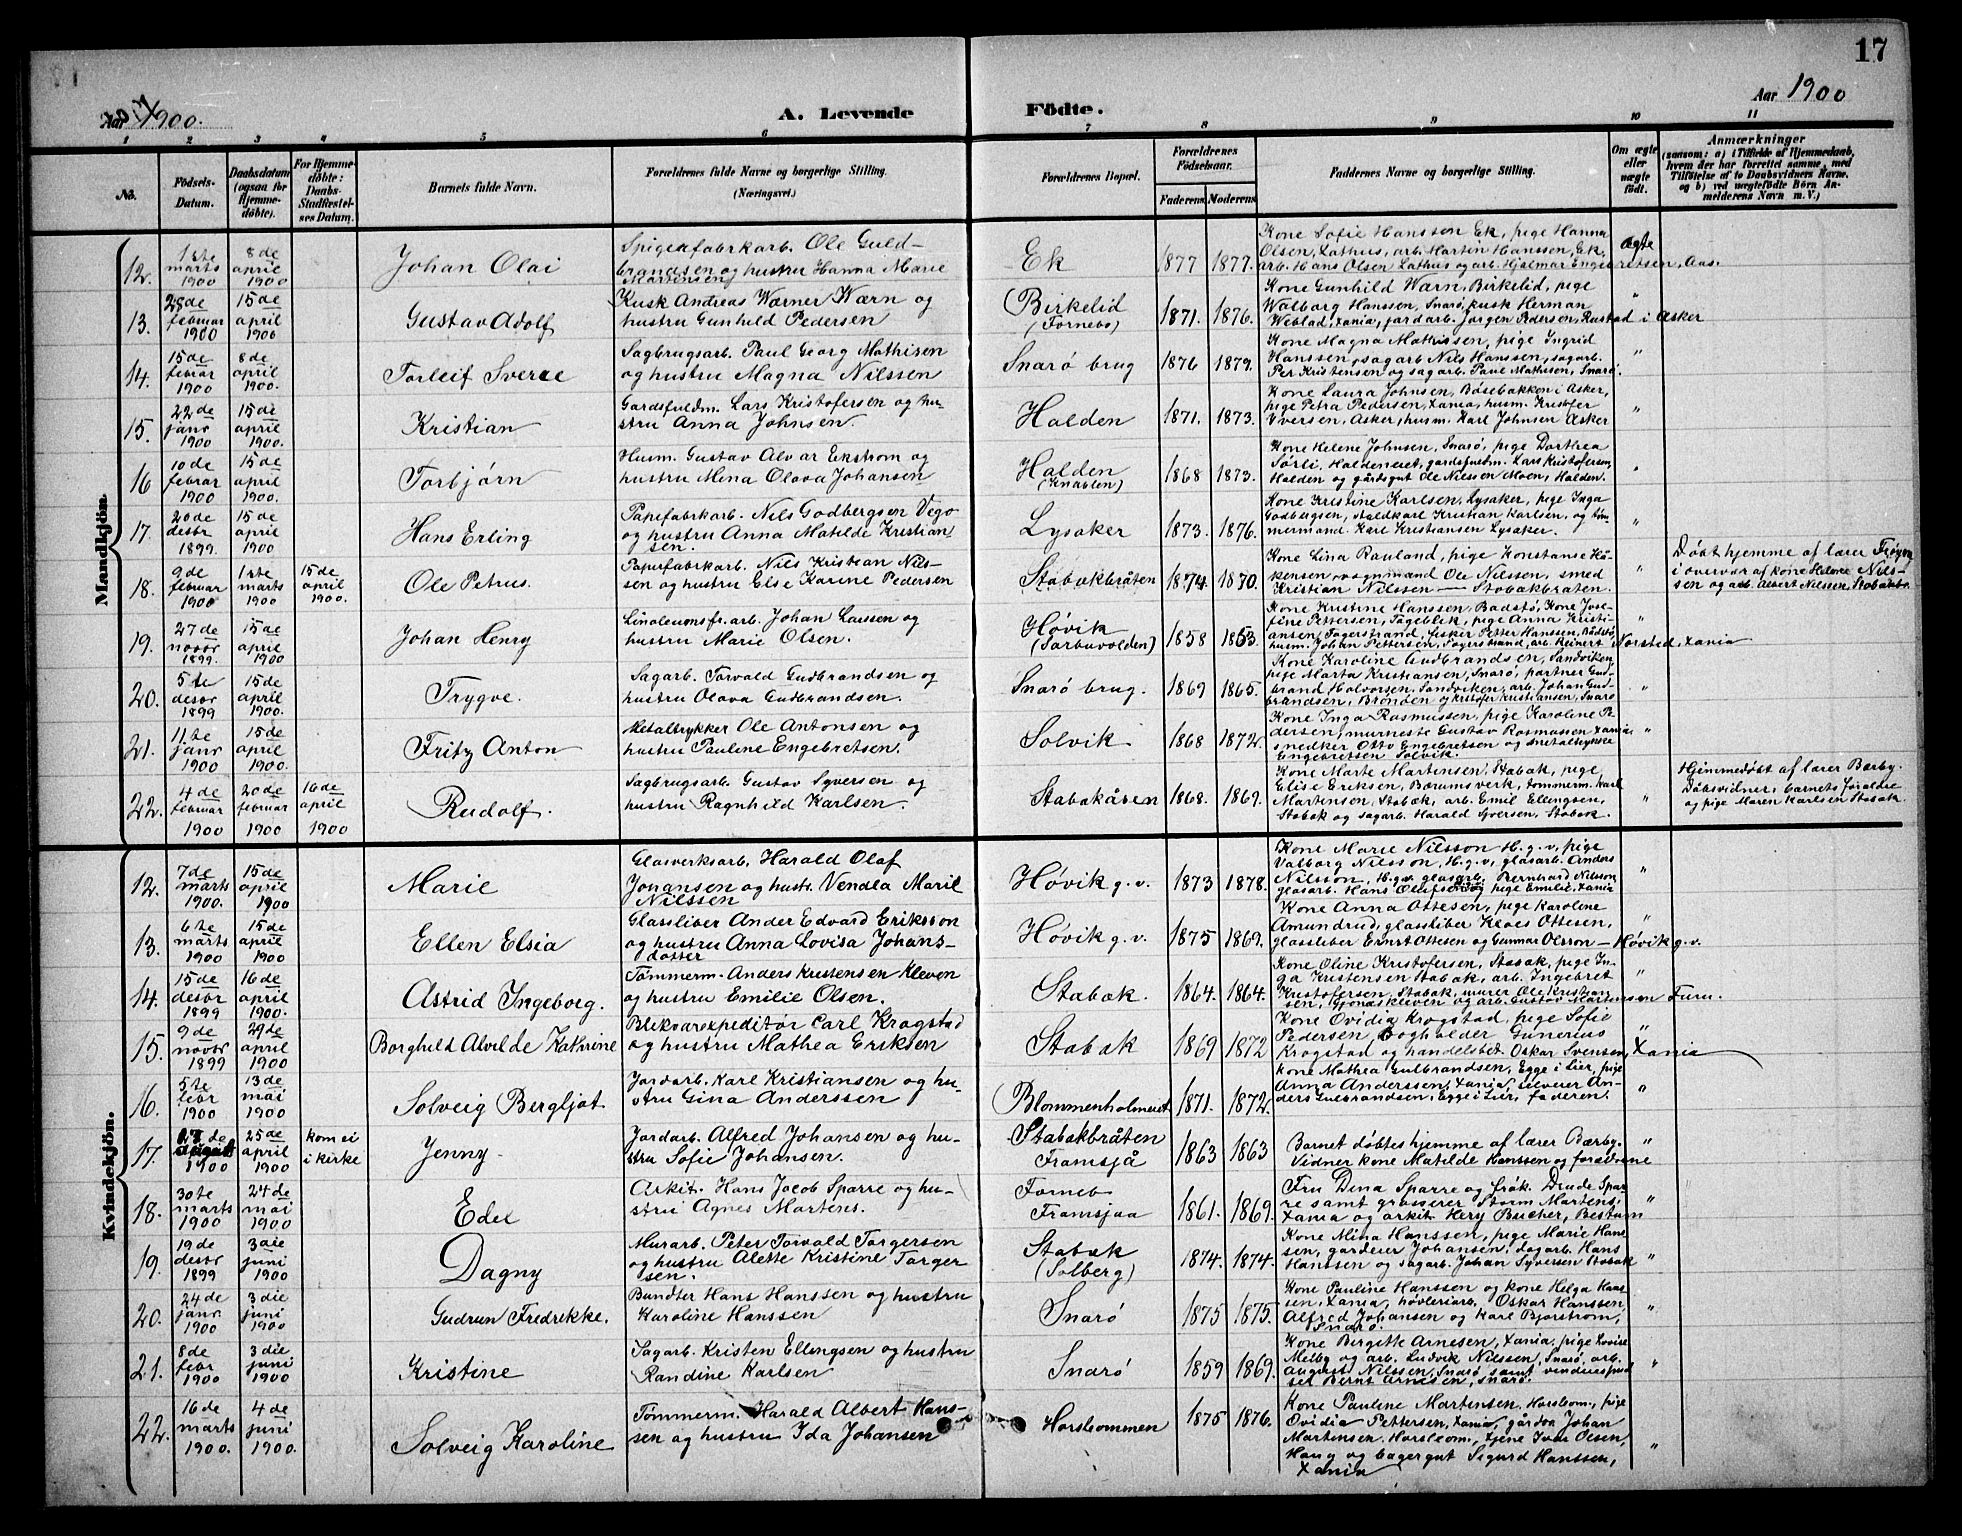 17
Aar 1900.
A. Levende
Födte.
Aar 1900
1 2 3 4 5 6 7 8 9 10 11
No.
Födsels-Datum.
Daabsdatum (ogsaa for Hjemme-döbte).
For Hjemme-döbte: Daabs-Stadfæstelses Datum.
Barnets fulde Navn.
Forældrenes fulde Navne og borgerlige Stilling.
(Næringsvei.)
Forældrenes Bopæl.
Forældrenes Födselsaar.
Faderens Moderens
Faddernes Navne og borgerlige Stilling.
Om ægte eller uægte födt.
Anmærkninger
(saasom: a) i Tilfælde af Hjemmedaab, hvem der har forrettet samme, med Tilföielse af to Daabsvidners Navne, og b) ved uægtefödte Börn Anmelderens Navn m. V.)
Mandkjön.
12. 1ste marts 1900 8de april 1900 Johan Olai Spigerfabrkarb. Ole Guld-
brandsen og hustru Hanna Marie
Martinsen
Ek 1877 1877. Kone Sofie Hanssen Ek, pige Hanna
Olsen, Lathus, arb. Martin Hanssen, Ek,
arb. Hans Olsen Lathus og arb. Hjalmar Engebretsen, Aas.
ægte
13. 28de februar 1900 15de april 1900 Gustav Adolf Kusk Andreas Wærner Wærn og
hustru Gunhild Pedersen
Birkelid
(Fornebo)
1871. 1876. Kone Gunhild Wærn, Birkelid, pige
Walborg Hanssen, Snarö, kusk Herman
Weblad, Xania, jordarb. Jörgen Pedersen, Rustad i Asker
"
14. 15de februar 1900 8de april 1900. Torleif Sverre Sagbrugsarb. Paul Georg Mathisen
og hustru Magna Nilssen
Snarö brug 1876 1879. Kone Magna Mathissen, pige Ingrid
Hanssen, sagarb. Nils Hanssen, sagarb.
Per Kristensen og sagarb. Paul Mathisen, Snarö.
"
15. 22de janr 1900 15de april 1900. Kristian Gardsfuldm. Lars Kristofersen og hu-
stru Anna Johnsen.
Halden 1871. 1873. Kone Laura Johnsen, Bösebakken i Asker,
pige Petra Pedersen, Xania, husm. Kristofer
Iversen, Asker, husm. Karl Johnsen Asker
"
16 10de februar 1900 15de april 1900 Torbjørn Husm. Gustav Alvar Ekstrom og
hustru Mina Olava Johansen
Halden
(Knablen)
1868 1873. Kone Helene Johnsen, Snarö, pige Dorthea
Sørli, Haldeneiet, gardsfuldm. Lars Kristofersen,
Halden og gårdsgut Ole Nilssen Moen, Halden.
"
17. 20de desbr 1899. 15de april 1900 Hans Erling Papefabrkarb. Nils Godbergsen Vego
og hustru Anna Matilde Kristian-
sen.
Lysaker 1873. 1876. Kone Kristine Karlsen, Lysaker, pige Inga
Godbergsen, staldkarl Kristian Karlsen, og töm-
mermand. Karl Kristiansen Lysaker.
"
18. 9de februar 1900 1ste marts 1900 15de april 1900. Ole Petrus. Papirfabrkarb. Nils Kristian Nils-
sen og hustru Else Karine Pedersen
Stabækbråten 1874. 1870. Kone Lina Rauland, pige Konstanse Hå-
kensen, vognmand Ole Nilssen, smed
Kristian Nilssen — Stabækbråten.
"
Døbt hjemme af lærer Frøyen
i overvær af kone Helene Nils-
sen og arb. Albert Nilssen, Stabækbr.
19. 27de novbr 1899. 15de april 1900 Johan Henry Linoleumsfr. arb. Johan Larssen og
hustru Marie Olsen.
Høvik
(Sarbuvolden)
1858 1863. Kone Kristine Hanssen, Badstö, Kone Jose-
fine Pettersen, Fageblik, pige Anna Kristi-
ansen, Fagerstrand, fisker Petter Hanssen, Badstö,
husm. Johan Pettersen, Fagerstrand, arb. Reinert Norsted, Xania
20. 5te desbr 1899 15de april 1900. Trygve. Sagarb. Torvald Gudbrandsen og
hustru Olava Gudbrandsen.
Snarö brug. 1869 1865. Kone Karoline Gudbrandsen, Sandviken,
pige Marta Kristiansen, Snarö, partner Gud-
brand Halvorsen, Sandviken, arb. Johan Gud-
brandsen, Brönden og Kristofer Kristiansen, Snarö
"
21. 11te janr 1900 15de april 1900. Fritz Anton Metaltrykker Ole Antonsen og
hustru Pauline Engebretsen.
Solvik 1868 1872. Kone Inga Rasmussen, pige Karoline Pe-
dersen, murmeste Gustav Rasmussen Xania
snedker Otto Engebretsen og metaltrykke
Engebretsen Solvik.
"
22. 4de februar 1900 20de februar 1900 16de april 1900 Rudolf. Sagbrugsarb. Gustav Syversen og
hustru Ragnhild Karlsen.
Stabækåsen 1868. 1869. Kone Marte Martensen, Stabæk, pige
Elise Eriksen, Bærumsverk, tømmerm. Karl
Martensen, Stabæk, arb. Emil Ellengsen,
Stabæk og sagarb. Harald Syversen, Stabæk.
"
Hjemmedøbt af lærer Bærby.
Døbsvidner, barnets forældre
og pige Maren Karlsen Stabæk.
Kvindekjön.
12. 7de marts 1900. 15de april 1900 Marie Glasverksarb. Harald Olaf
Johansen og hustr. Vendla Maril
Nilssen
Høvik g. v. 1873 1878. Kone Marie Nilsson H.g.v, pige
Valborg Nilsson, H.g.v, glasarb. Anders
Nilsson, H.g.v. glasarb. Bernhard Nilson,
glasarb. Hans Olafsen og pige Emilie, Xania
"
13. 6te marts 1900 15de april 1900 Ellen Elsia Glassliber Ander Edvard Eriksson
og hustru Anna Lovisa Johans-
dotter
Høvik g. v. 1875 1869. Kone Anna Ottesen, pige Karoline
Amundrud, glassliber Klaes Ottesen,
glassliber Ernst Ottesen og Gunnar Olsson — Høvik g. v.
"
14. 15de desbr 1899 16de april 1900. Astrid Ingeborg. Tömmerm. Anders Kristensen Kleven
og hustru Emilie Olsen.
Stabæk. 1864. 1864. Kone Oline Kristofersen, Stabæk, pige In-
ga Kristensen Stabæk, arb. Ingebret
Kristofersen, Stabæk, murer Ole Kristian-
sen, Grønaskleven og arb. Gustav Martensen Furu.
"
15. 9de novbr 1899 29de april 1900 Borghild Alvilde Kathrine Blikvarexpeditör Carl Krogstad
og hustru Mathea Eriksen
Stabæk 1869 1872 Kone Ovidia Krogstad, pige Sofie
Pedersen, bogholder Gunerius
Krogstad og handelsbet. Oskar Svensen, Xania
"
16. 5te febr 1900 13de mai 1900 Solveig Bergljot Jordarb. Karl Kristiansen og hu-
stru Gina Anderssen
Blommenholmeiet 1871. 1872. Kone Mathea Gulbrandsen, Egge i Lier, pige
Anna Anderssen, Xania, selveier An-
ders Gulbrandsen, Egge i Lier, faderen.
"
17. 1900 25de april 1900 kom ei
i kirke Jenny. Jordarb. Alfred Johansen og hu-
stru Sofie Johansen.
Stabækbråten
Framsjå
1863 1863 Barnet døbtes hjemme af lærer Bærby.
Vidner kone Matilde Hanssen og forældrene
"
18. 30te marts 1900 24de mai 1900 Edel Arkit. Hans Jacob Sparre og hu-
stru Agnes Martens.
Forneb
Framsjaa
1861. 1869. Fru Dina Sparre og frök. Drude Spar-
re samt grosserer Storm Martens,
Xania og arkit. Hery Bucher, Bestum
"
19. 19de desbr 1899 3die juni 1900 Dagny Murarb. Peter Torvald Torgersen
og hustru Alette Kristine Torger
sen.
Stabæk
(Solberg)
1874. 1874. Kone Mina Hanssen, pige Marie Hans
sen, gardeier Johansen, dagarb. Hans
Hanssen og sagarb. Johan Syversen Stabæk
"
20. 24de janr 1900 3die juni 1900 Gudrun Fredrikke. Bundter Hans Hanssen og hustru
Karoline Hanssen
Snarö 1875 1875. Kone Pauline Hanssen og kone Helga Hans
sen, Xania, høvleriarb. Oskar Hanssen,
Alfred Johansen og Karl Bjorstrom,
Snarö.
"
21. 8de febr 1900 3die juni 1900 Kristine Sagarb. Kristen Ellengsen og hustru
Randine Karlsen
Snarö 1859 1869. Kone Birgitte Arnesen, Xania, pige Lovise
Melby og arb. Ludvik Nilssen, Snarö, arb.
August Nilssen, Snarö samt vinduespud
ser Bernt Arnesen, Snarö.
"
22. 16de marts 1900. 4de juni 1900. Solveig Karoline Tömmerm. Harald Albert Hans-
sen og hustru Ida Johansen
Horslommen 1875 1876. Kone Pauline Martensen, Horslom, pige
Ovidia Pettersen, Xania, gårdsa Johan
Martensen, Horslom, tjene Ivar Olsen,
Haug og bagergut Sigurd Hanssen,
Xania
"